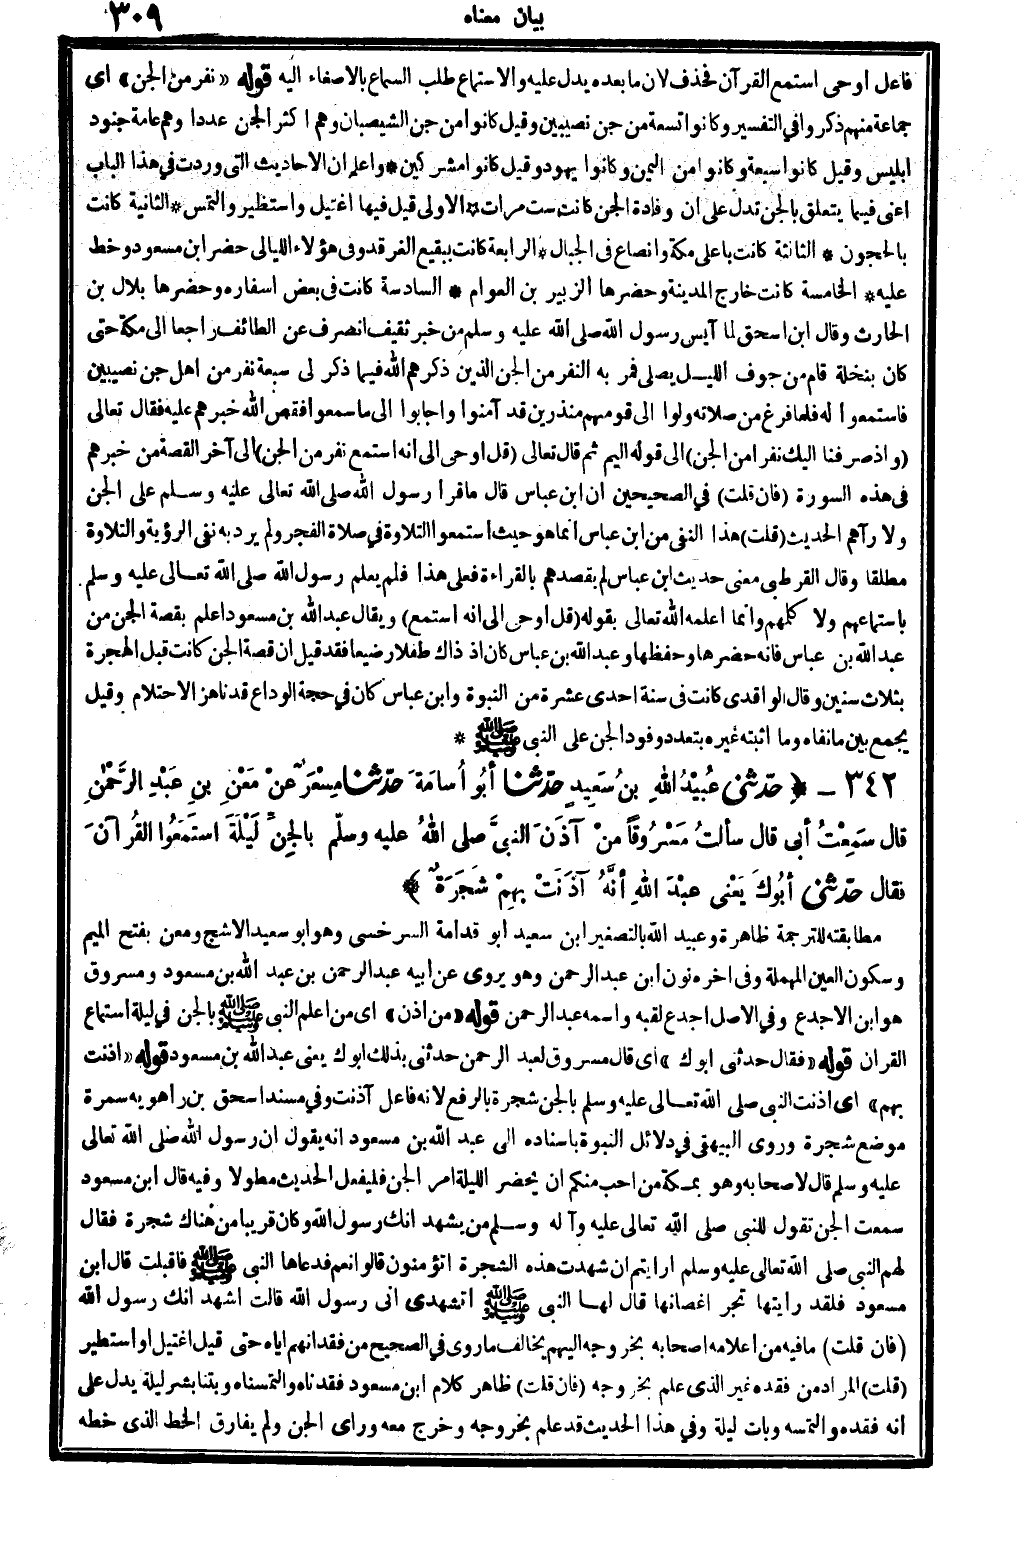 بيان معناه ٣٠٩
فاعل اوحى استمع القرآن فحذف لان ما بعده يدل عليه والاستماع طلب السماع بالاصغاء اليه قوله «نفر من الجن» اى
جماعة منهم ذكروا في التفسير وكانوا تسعة من جن نصيبين وقيل كانوا من جن الشيصبان وهم اكثر الجن عددا وهم عامة جنود
ابليس وقيل كانوا سبعة وكانوا من اليمن وكانوا يهود وقيل كانوا مشركين * واعلم ان الاحاديث التى وردت في هذا الباب
اعنى فيما يتعلق بالجن تدل على ان وفادة الجن كانت ست مرات * الاولى قيل فيها اغتيل واستطير والتمس * الثانية كانت
بالحجون * الثالثة كانت باعلى مكة وانصاع فى الجبال * الرابعة كانت ببقيع الغرقد وفى هؤلاء الليالى حضر ابن مسعود وخط
عليه * الخامسة كانت خارج المدينة وحضرها الزبير بن العوام * السادسة كانت فى بعض اسفاره وحضرها بلال بن
الحارث وقال ابن اسحق لما آيس رسول الله صلى الله عليه وسلم من خبر ثقيف انصرف عن الطائف راجعا الى مكة حتى
كان بنخلة قام من جوف الليل يصلى فمر به النفر من الجن الذين ذكرهم الله فيما ذكر لى سبعة نفر من اهل جن نصيبين
فاستمعوا له فلما فرغ من صلاته ولوا الى قومهم منذرين قد آمنوا واجابوا الى ما سمعوا فقص الله خبرهم عليه فقال تعالى
(واذ صرفنا اليك نفرا من الجن) الى قوله اليم ثم قال تعالى (قل اوحى الى انه استمع نفر من الجن) الى آخر القصة من خبرهم
فى هذه السورة (فان قلت) في الصحيحين ان ابن عباس قال ما قرأ رسول الله صلى الله تعالى عليه وسلم على الجن
ولا رآهم الحديث (قلت) هذا النفى من ابن عباس انما هو حيث استمعوا التلاوة في صلاة الفجر ولم يرد به نفى الرؤية والتلاوة
مطلقا وقال القرطبى معنى حديث ابن عباس لم يقصدهم بالقراءة فعلى هذا فلم يعلم رسول الله صلى الله تعالى عليه وسلم
باستماعهم ولا كلمهم وانما اعلمه الله تعالى بقوله (قل اوحى الى انه استمع) ويقال عبد الله بن مسعود اعلم بقصة الجن من
عبد الله بن عباس فانه حضرها وحفظها وعبد الله بن عباس كان اذ ذاك طفلا رضيعا فقد قيل ان قصة الجن كانت قبل الهجرة
بثلاث سنين وقال الواقدى كانت فى سنة احدى عشرة من النبوة وابن عباس كان في حجة الوداع قد ناهز الاحتلام وقيل
يجمع بين ما نفاه وما اثبته غيره بتعدد وفود الجن على النبى ﷺ *
٣٤٢ - ﴿ حَدَّثَنِى عُبَيْدُ اللهِ بنُ سَعِيدٍ حَدَّثَنَا أَبُو أُسَامَةَ حَدَّثَنَا مِسْعَرٌ عَنْ مَعْنِ بنِ عَبْدِ الرَّحْمٰنِ
قال سَمِعْتُ أبى قال سألتُ مَسْرُوقاً مَنْ آذَنَ النبىَّ صلى اللهُ عليه وسلّم بالجِنِّ لَيْلَةَ استَمَعُوا القُرْآنَ
فقال حَدَّثَنِى أبُوكَ يَعْنِى عبْدَ اللهِ أنَّهُ آذَنَتْ بِهِمْ شَجَرَةٌ * ﴾
مطابقته للترجمة ظاهرة وعبيد الله بالتصغير ابن سعيد أبو قدامة السرخسى وهو ابو سعيد الاشج ومعن بفتح الميم
وسكون العين المهملة وفى اخره نون ابن عبد الرحمن وهو يروى عن أبيه عبد الرحمن بن عبد الله بن مسعود ومسروق
هو ابن الاجدع وفي الاصل اجدع لقبه واسمه عبد الرحمن قوله «من اذن» اى من اعلم النبى ﷺ بالجن في ليلة استماع
القران قوله «فقال حدثنى ابوك» اى قال مسروق لعبد الرحمن حدثنى بذلك ابوك يعنى عبد الله بن مسعود قوله «اذنت
بهم» اى اذنت النبى صلى الله تعالى عليه وسلم بالجن شجرة بالرفع لانه فاعل آذنت وفي مسند اسحق بن راهويه سمرة
موضع شجرة وروى البيهقى في دلائل النبوة باسناده الى عبد الله بن مسعود انه يقول ان رسول الله صلى الله تعالى
عليه وسلم قال لاصحابه وهو بمكة من احب منكم ان يحضر الليلة امر الجن فليفعل الحديث مطولا وفيه قال ابن مسعود
سمعت الجن تقول للنبى صلى الله تعالى عليه وآله وسلم من يشهد انك رسول الله وكان قريبا من هناك شجرة فقال
لهم النبى صلى الله تعالى عليه وسلم ارايتم ان شهدت هذه الشجرة اتؤمنون قالوا نعم فدعاها النبى ﷺ فاقبلت قال ابن
مسعود فلقد رأيتها تجر اغصانها قال لها النبى ﷺ اتشهدى انى رسول الله قالت اشهد انك رسول الله
(فان قلت) ما فيه من اعلامه اصحابه بخروجه اليهم يخالف ما روى في الصحيح من فقدانهم اياه حتى قيل اغتيل او استطير
(قلت) المراد من فقده غير الذى علم بخروجه (فان قلت) ظاهر كلام ابن مسعود فقدناه والتمسناه وبتنا بشر ليلة يدل على
أنه فقده والتمسه وبات ليلة وفي هذا الحديث قد علم بخروجه وخرج معه وراى الجن ولم يفارق الخط الذى خطه